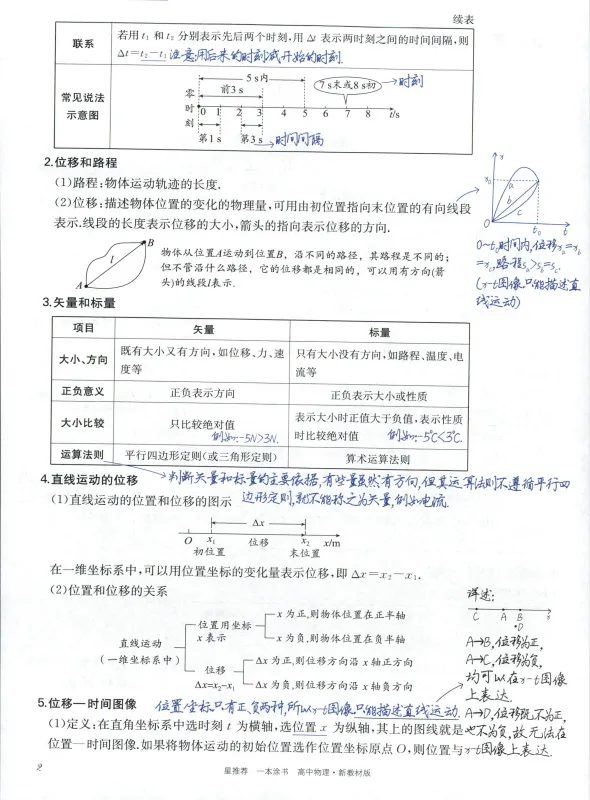 续表
联系
若用 t₁ 和 t₂ 分别表示先后两个时刻,用 Δt 表示两时刻之间的时间间隔,则
Δt=t₂-t₁ 注意用后来的时刻减开始的时刻.
常见说法
示意图
5 s内
前3 s
7 s末或8 s初
时刻
零
时
刻
0 1 2 3 4 5 6 7 8 t/s
第1 s
第3 s
时间间隔
2.位移和路程
(1)路程:物体运动轨迹的长度.
(2)位移:描述物体位置的变化的物理量,可用由初位置指向末位置的有向线段
表示.线段的长度表示位移的大小,箭头的指向表示位移的方向.
x
x₀
a
b
c
O
t₀
t
0~t₀时间内,位移xₐ=x_b
=x_c,路程sₐ>s_b=s_c.
(x-t图像只能描述直
线运动)
A
l
B
物体从位置A运动到位置B,沿不同的路径,其路程是不同的;
但不管沿什么路径,它的位移都是相同的,可以用有方向(箭
头)的线段l表示.
3.矢量和标量
项目
矢量
标量
大小、方向
既有大小又有方向,如位移、力、速
度等
只有大小没有方向,如路程、温度、电
流等
正负意义
正负表示方向
正负表示大小或性质
大小比较
只比较绝对值
例如:-5N>3N.
表示大小时正值大于负值,表示性质
时比较绝对值 例如:-5℃<3℃.
运算法则
平行四边形定则(或三角形定则)
算术运算法则
判断矢量和标量的主要依据,有些量虽然有方向,但其运算法则不遵循平行四
边形定则,就不能称之为矢量,例如电流.
4.直线运动的位移
(1)直线运动的位置和位移的图示
Δx
O x₁ 位移 x₂ x/m
初位置 末位置
在一维坐标系中,可以用位置坐标的变化量表示位移,即 Δx=x₂-x₁.
(2)位置和位移的关系
直线运动
(一维坐标系中)
位置用坐标
x 表示
x 为正,则物体位置在正半轴
x 为负,则物体位置在负半轴
位移
Δx=x₂-x₁
Δx 为正,则位移方向沿 x 轴正方向
Δx 为负,则位移方向沿 x 轴负方向
详述:
C A B x
D
A→B,位移为正,
A→C,位移为负,
均可以在x-t图像
上表达.
A→D,位移既不为正,
也不为负,故无法在
x-t图像上表达.
5.位移—时间图像
位置坐标只有正、负两种,所以x-t图像只能描述直线运动.
(1)定义:在直角坐标系中选时刻 t 为横轴,选位置 x 为纵轴,其上的图线就是
位置—时间图像.如果将物体运动的初始位置选作位置坐标原点 O,则位置与
2
星推荐 一本涂书 高中物理·新教材版